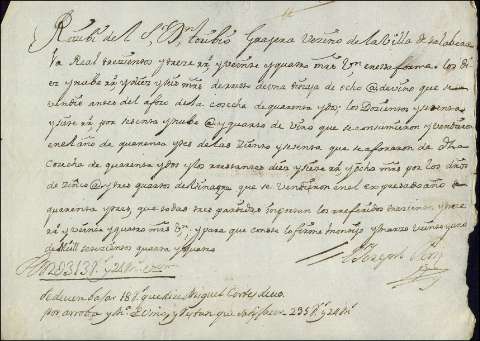 Rezibi del Sr. Dn. toribio Grajera Vezino de la Villa de talabera
la Real trezientos y treze rs. y veinte y quatro mrs. Vn. en esta forma. los di
ez y nuebe rs. y diez y seis mrs. de resto de una tinaja de ocho @ de vino que se
vendio antes del aforo de la cosecha de quarenta y dos; los Dozientos y setenta
y siete rs. por sesenta y nuebe @ y quarto de vino que se consumieron y vendieron
en el año de quarenta y tres de las ziento y sesenta que se aforaron de dha
Cosecha de quarenta y dos y los restantes diez y siete rs. y ocho mrs por los dhos
de zinco @ y tres quartos de Vinagre que se vendieron en el expresado año de
quarenta y tres, que todas tres partidas importan los referidos trezientos y treze
rs. y veinte y quatro mrs. Vn. y para que conste lo firme en y marzo veinte y uno
de Mill setezientos quarenta y quatro
313 Rs. y 24 mrs. vn
Joseph
se deuen basar 18 Rs. que dize Miguel Cortes
por arroba y de Vino, y que 295 Rs. y 24 Ms.